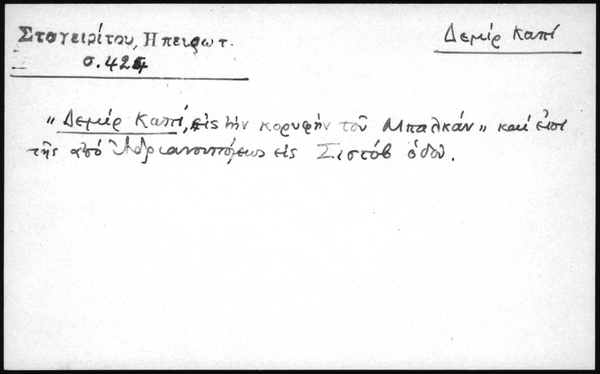 Σταγειρίτου, Ηπειρωτ.
σ. 425
Δεμίρ Καπί
"Δεμίρ Καπί, εἰς τὴν κορυφὴν τοῦ Μπαλκάν" καί ἐπί
τῆς ἀπό Ἀδριανουπόλεως εἰς Σιστόβ ὁδοῦ.